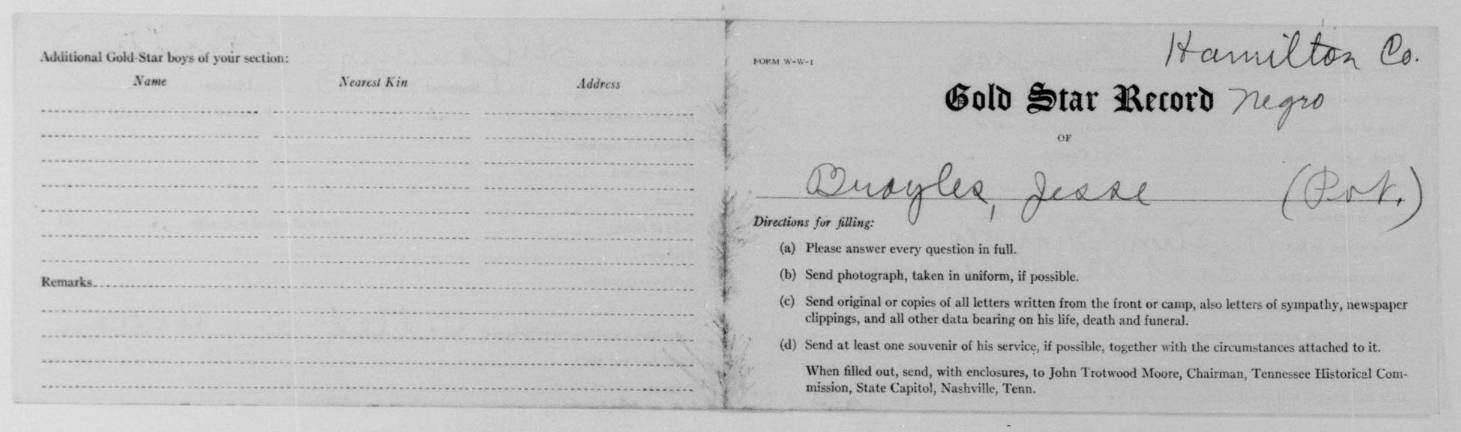 Additional Gold-Star boys of your section:
Name Nearest Kin Address
Remarks
FORM W-W-1
Hamilton Co.
Gold Star Record Negro
OF
Broyles, Jesse (Pvt.)
Directions for filling:
(a) Please answer every question in full.
(b) Send photograph, taken in uniform, if possible.
(c) Send original or copies of all letters written from the front or camp, also letters of sympathy, newspaper
clippings, and all other data bearing on his life, death and funeral.
(d) Send at least one souvenir of his service, if possible, together with the circumstances attached to it.
When filled out, send, with enclosures, to John Trotwood Moore, Chairman, Tennessee Historical Com-
mission, State Capitol, Nashville, Tenn.